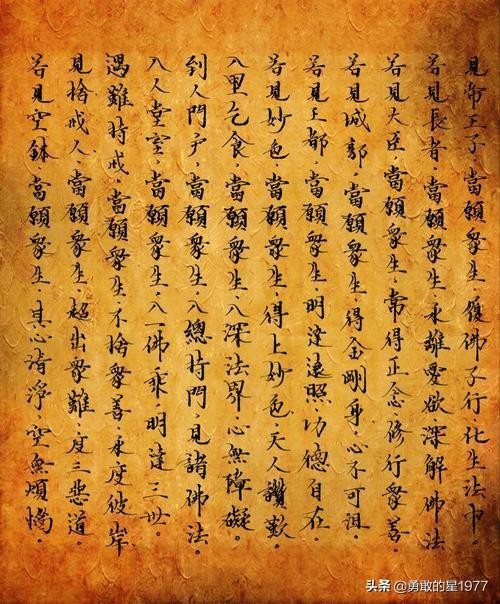 見帝王子，當願衆生，履佛子行，化生法中。
若見長者，當願衆生，永離愛欲，深解佛法
若見大臣，當願衆生，常得正念，修行衆善。
若見城郭，當願衆生，得金剛身，心不可沮。
若見王都，當願衆生，明達遠照，功德自在。
若見妙色，當願衆生，得上妙色，天人讚歎。
入里乞食，當願衆生，入深法界，心無障礙。
到人門户，當願衆生，入總持門，見諸佛法。
入人堂室，當願衆生，入一佛乘，明達三世。
遇難持戒，當願衆生，不捨衆善，永度彼岸
見捨戒人，當願衆生，超出衆難，度三惡道。
若見空鉢，當願衆生，其心清淨，空無煩惱。
头条 @勇敢的星1977